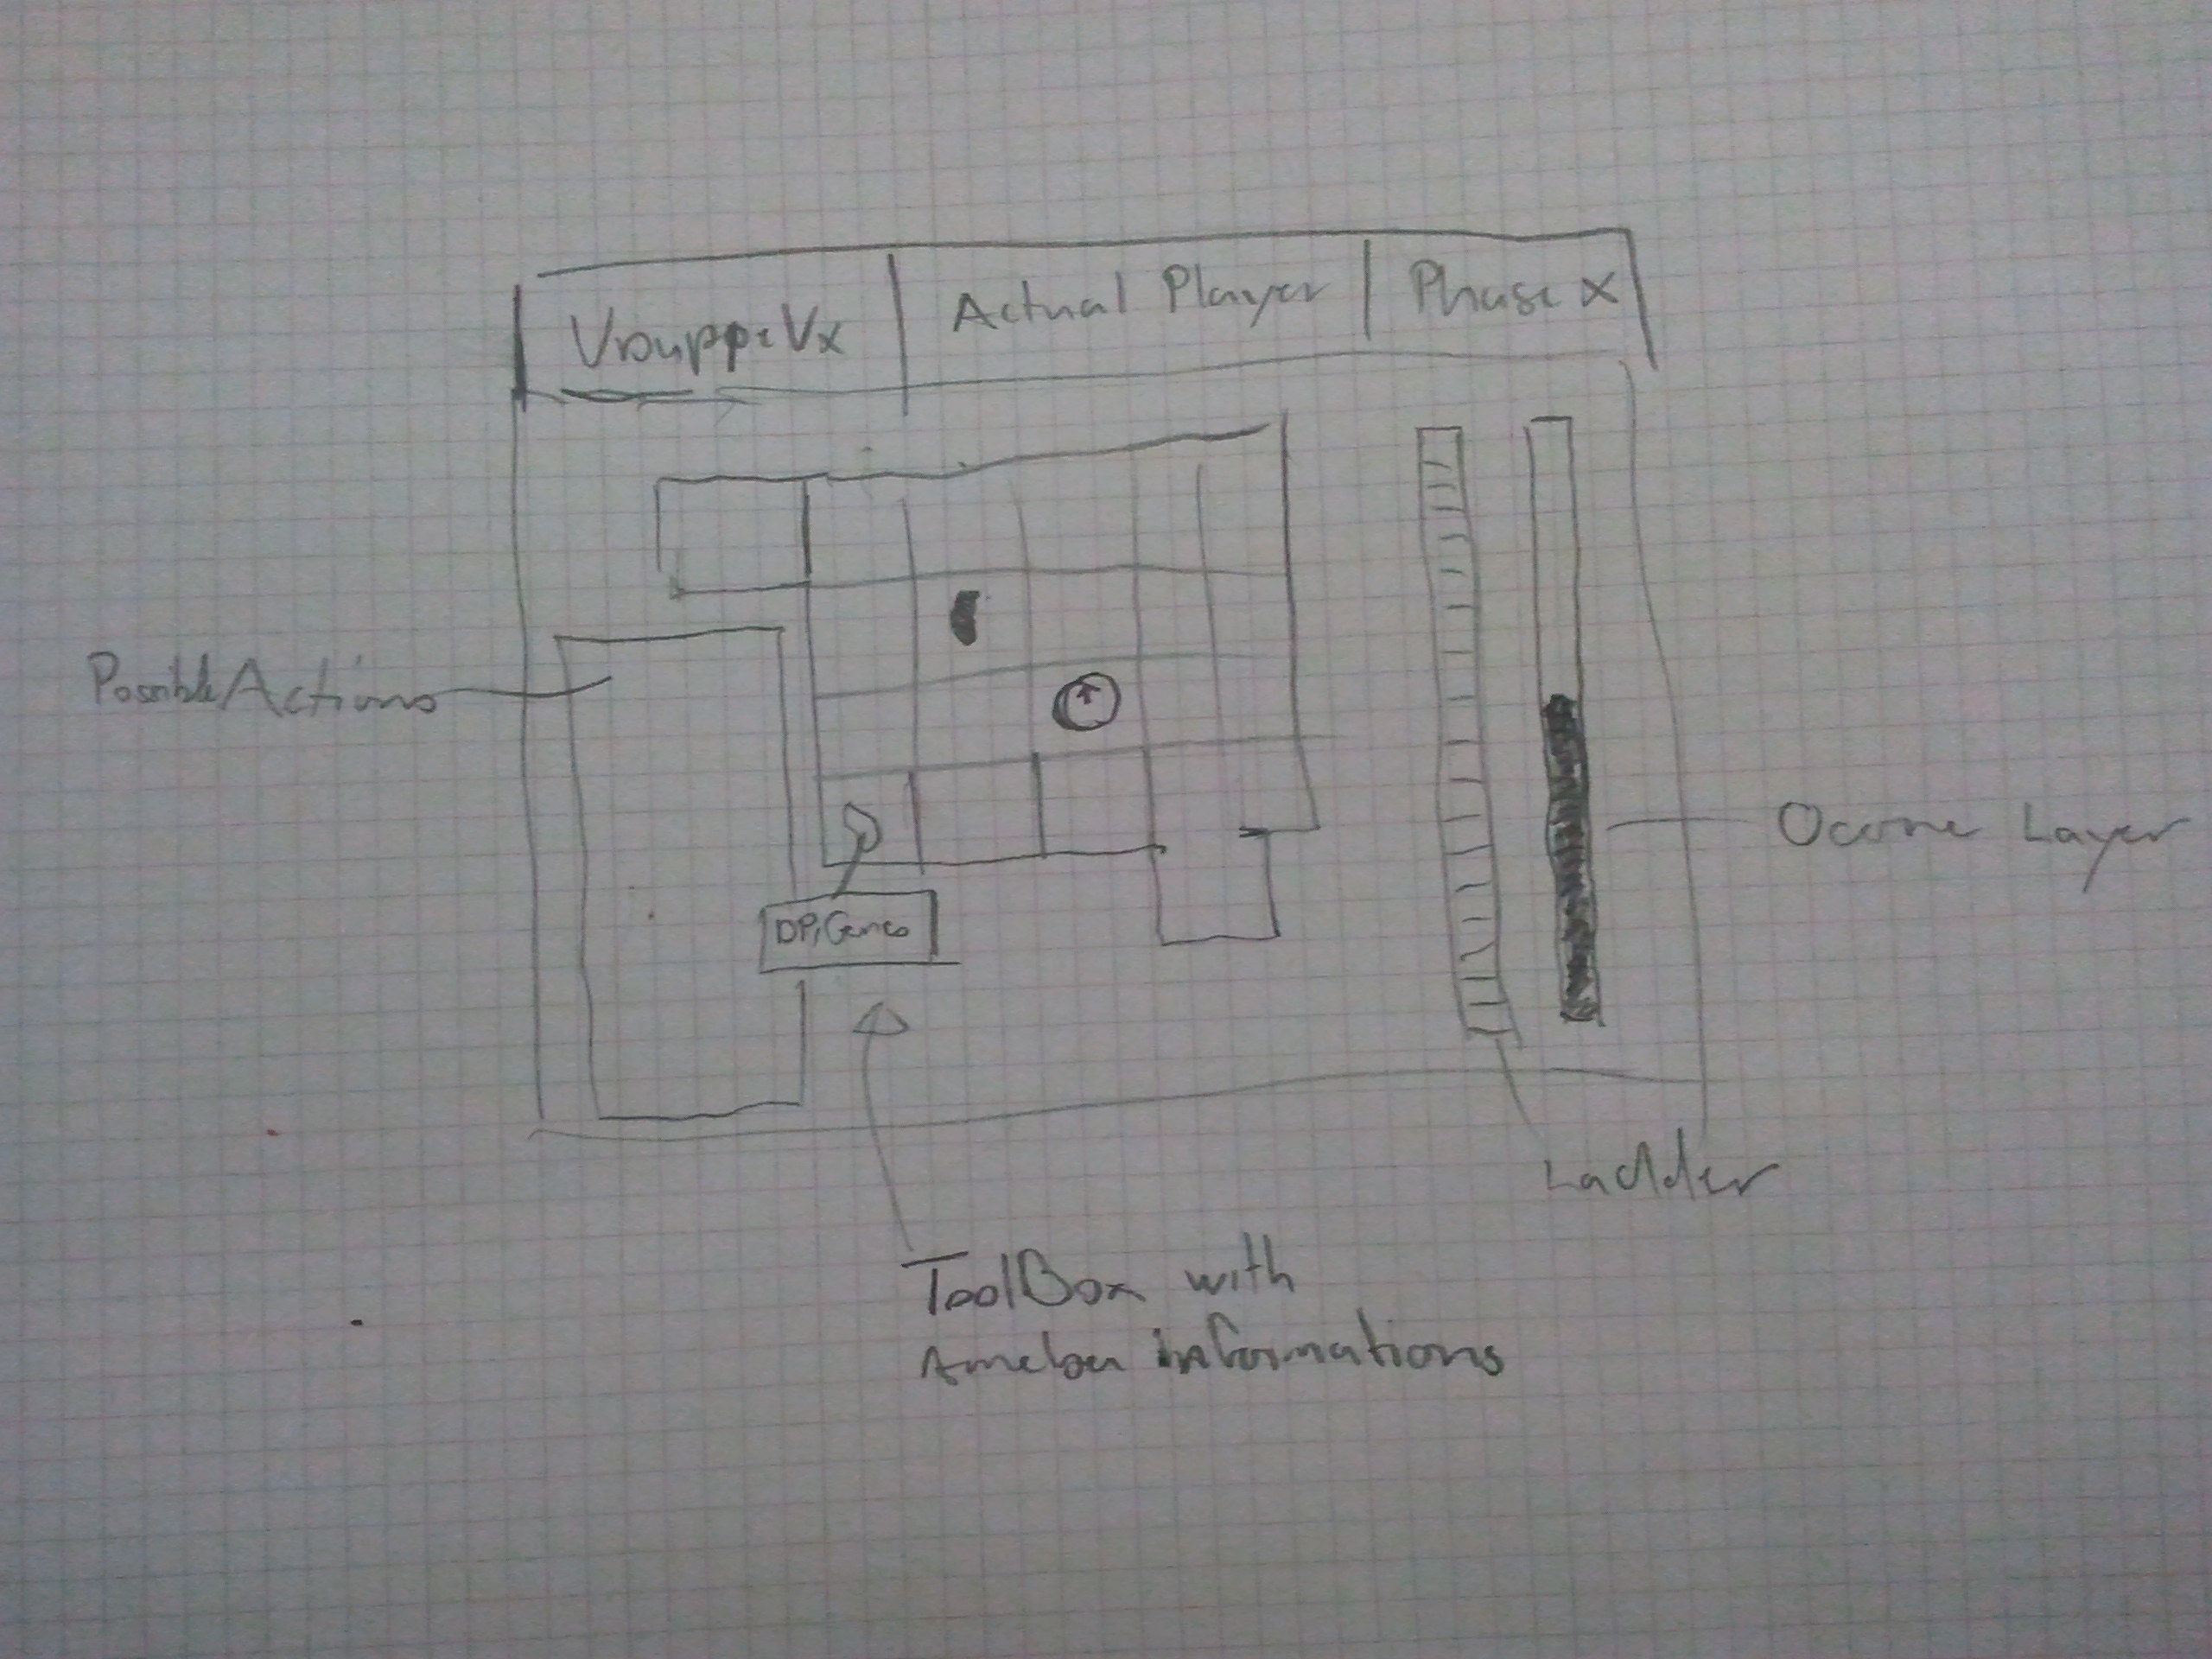 VrsuppeVx
Actual Player
Phase X
Possible Actions
Ocone Layer
DP, Genes
Ladder
ToolBox with
Ameba informations